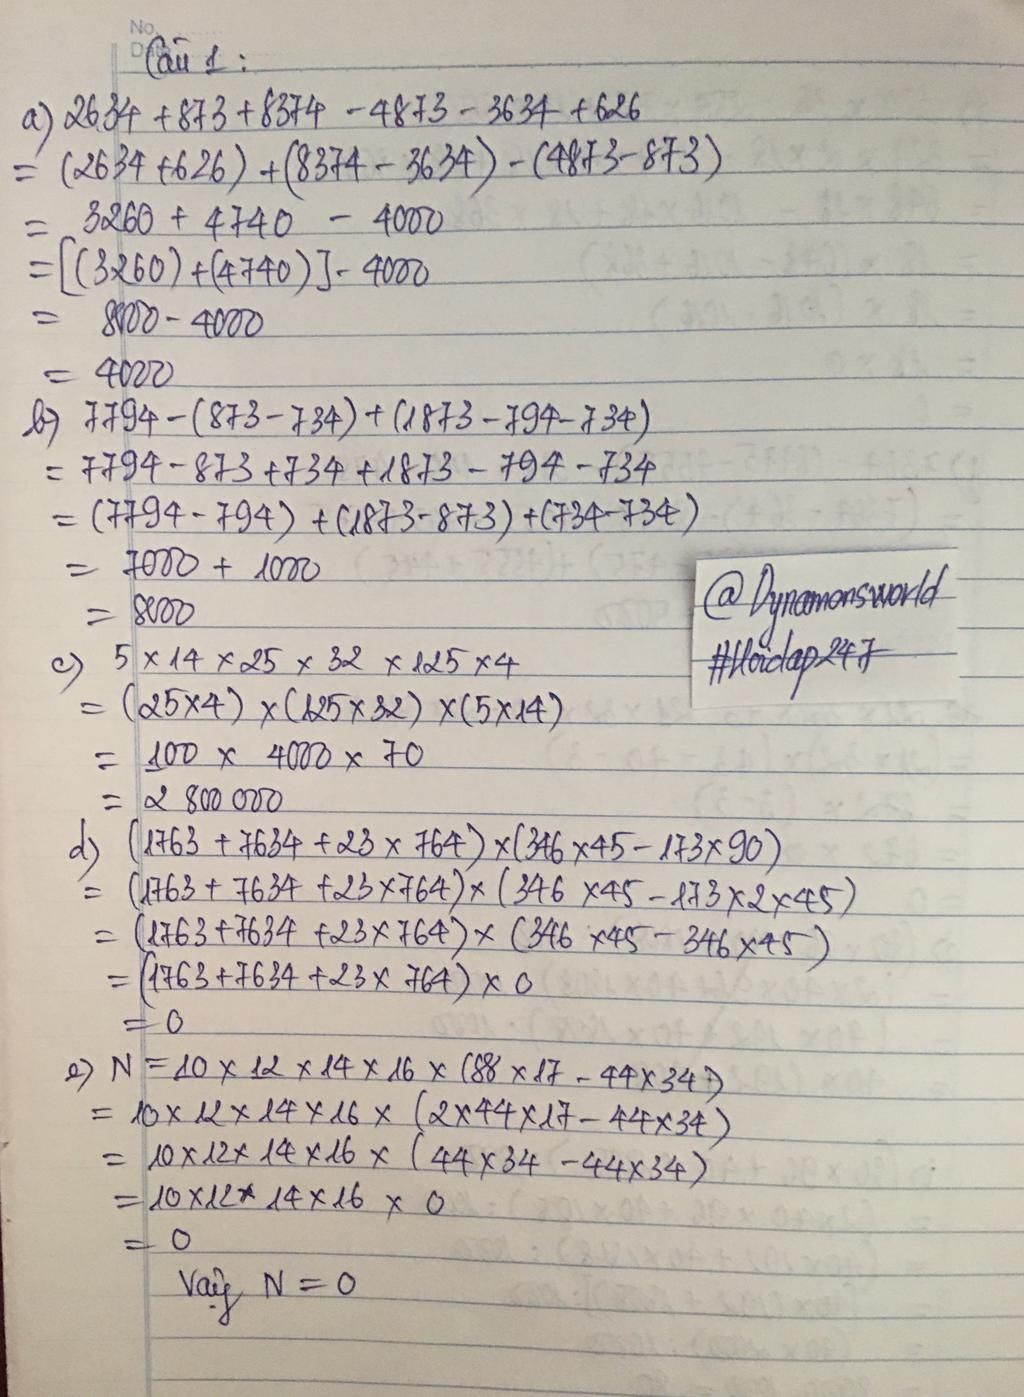 No.
Câu 1:
a) 2634 + 873 + 8374 - 4873 - 3634 + 626
= (2634 + 626) + (8374 - 3634) - (4873 - 873)
= 3260 + 4740 - 4000
= [(3260) + (4740)] - 4000
= 8000 - 4000
= 4000
b) 7794 - (873 - 734) + (1873 - 794 - 734)
= 7794 - 873 + 734 + 1873 - 794 - 734
= (7794 - 794) + (1873 - 873) + (734 - 734)
= 7000 + 1000
= 8000
@Dynamonsworld
#Hoidap247
c) 5 × 14 × 25 × 32 × 125 × 4
= (25 × 4) × (125 × 32) × (5 × 14)
= 100 × 4000 × 70
= 2 800 000
d) (1763 + 7634 + 23 × 764) × (346 × 45 - 173 × 90)
= (1763 + 7634 + 23 × 764) × (346 × 45 - 173 × 2 × 45)
= (1763 + 7634 + 23 × 764) × (346 × 45 - 346 × 45)
= (1763 + 7634 + 23 × 764) × 0
= 0
e) N = 10 × 12 × 14 × 16 × (88 × 17 - 44 × 34)
= 10 × 12 × 14 × 16 × (2 × 44 × 17 - 44 × 34)
= 10 × 12 × 14 × 16 × (44 × 34 - 44 × 34)
= 10 × 12 × 14 × 16 × 0
= 0
Vậy N = 0